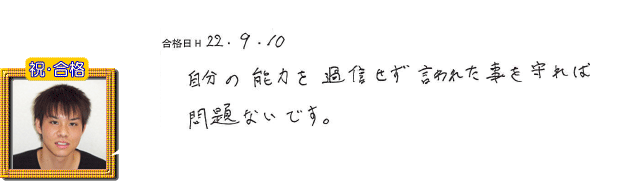 合格日H 22.9.10
祝・合格
自分の能力を過信せず言われた事を守れば
問題ないです。